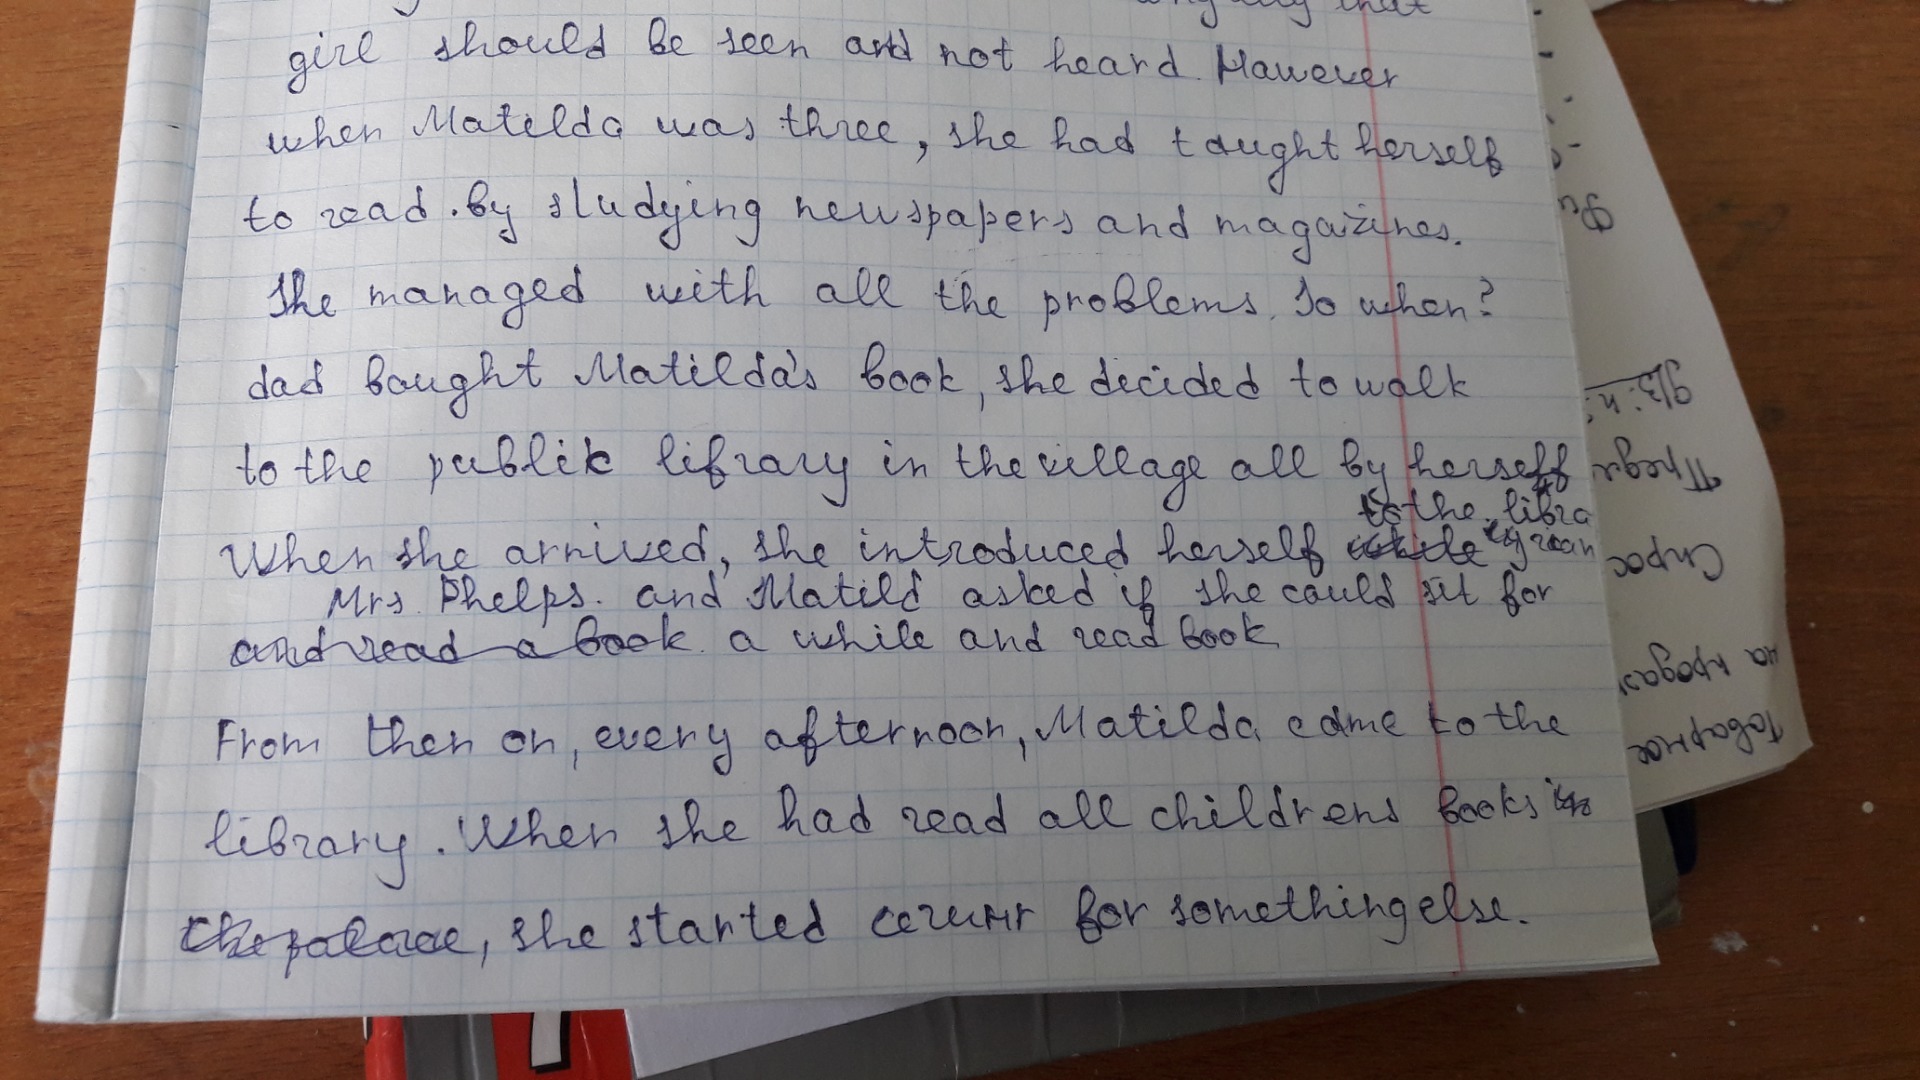 that
girl should be seen and not heard. However
when Matilda was three, she had taught herself
to read. by studying newspapers and magazines.
She managed with all the problems. So when?
dad bought Matilda's book, she decided to walk
to the publik library in the village all by herself
to the libra
When she arrived, she introduced herself rian
Mrs. Phelps. and Matild asked if she could sit for
and read a book. a while and read book
From then on, every afternoon, Matilda came to the
library. When she had read all childrens books in
the palace, she started for something else.
Ри
9/3:
Предл
Спрос
на продаж
Товарное